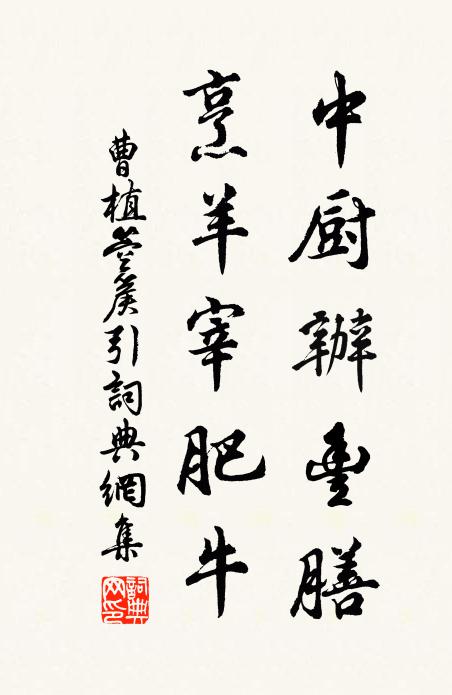 中厨辦豊膳
烹羊宰肥牛
曹植箜篌引詞典網集
詞典網印